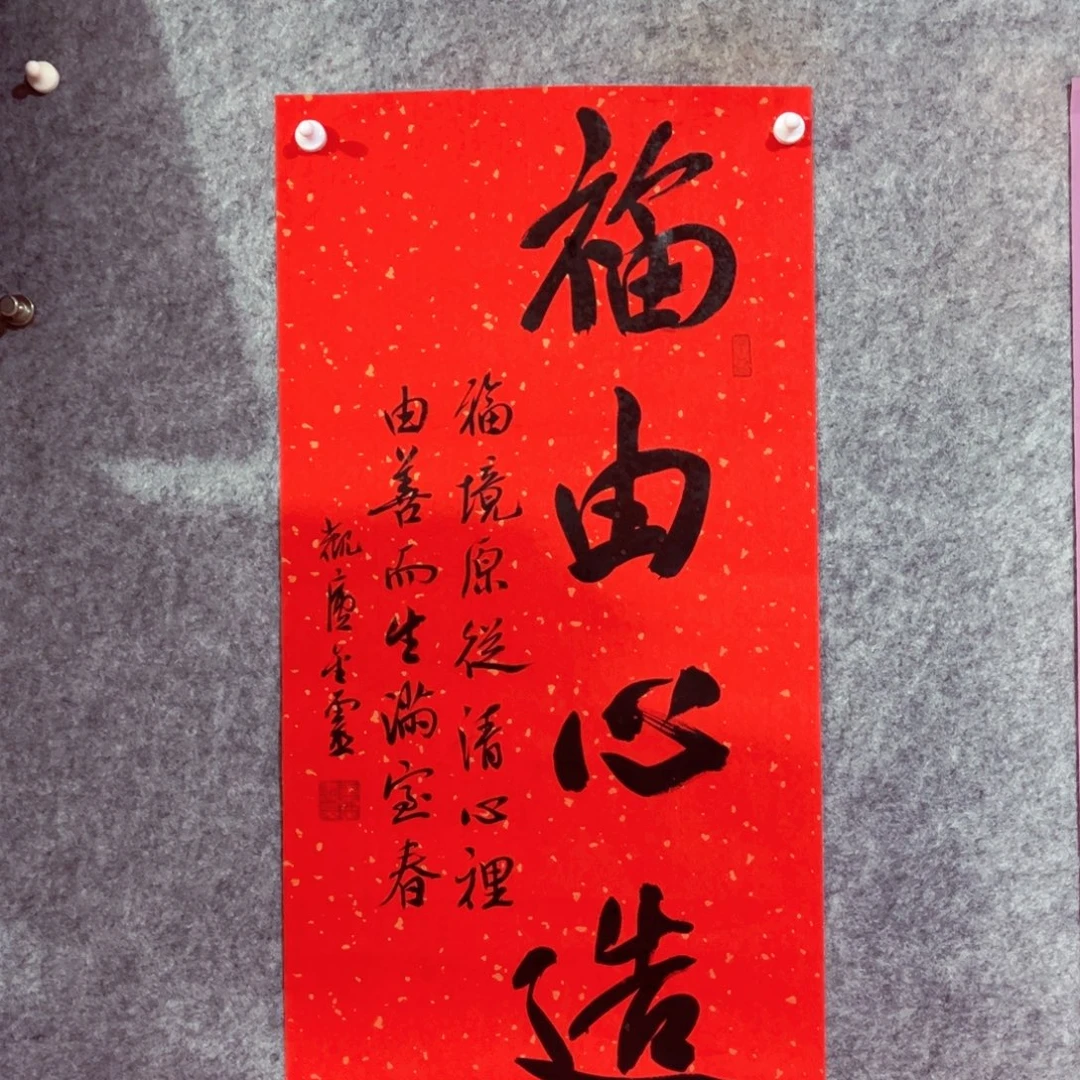 福由心造
福境原從清心裡
由善而生滿室春